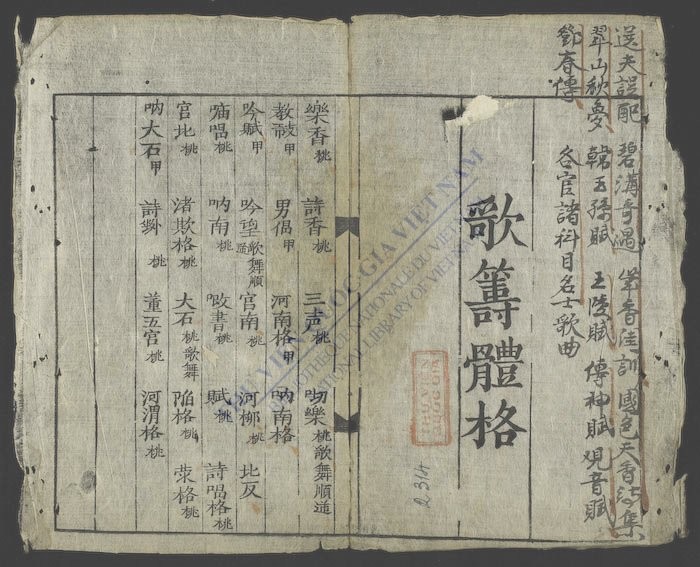 送夫誤配 碧溝奇遇 國色天香 集
翠山秋夢 韓王孫賦 王陵賦 傳神賦 観音賦
鄧春傳 各官諸科目名士歌曲
歌籌體格
R.314
THƯ VIỆN QUỐC GIA VIỆT NAM
BIBLIOTHÈQUE NATIONALE DU VIETNAM
NATIONAL LIBRARY OF VIETNAM
樂香桃 詩香桃 三声桃 吻樂桃歌舞順逆
教 甲 男倡甲 河南格甲 吶南格
吟賦甲 吟望歌舞順 官南桃 河柳桃 比反
唱桃 吶南桃 書桃 賦桃 詩唱格桃
宮北桃 渚欺格桃 大石桃歌舞 陷格桃 格桃
吶大石甲 詩 桃 董五宮桃 河渭格桃